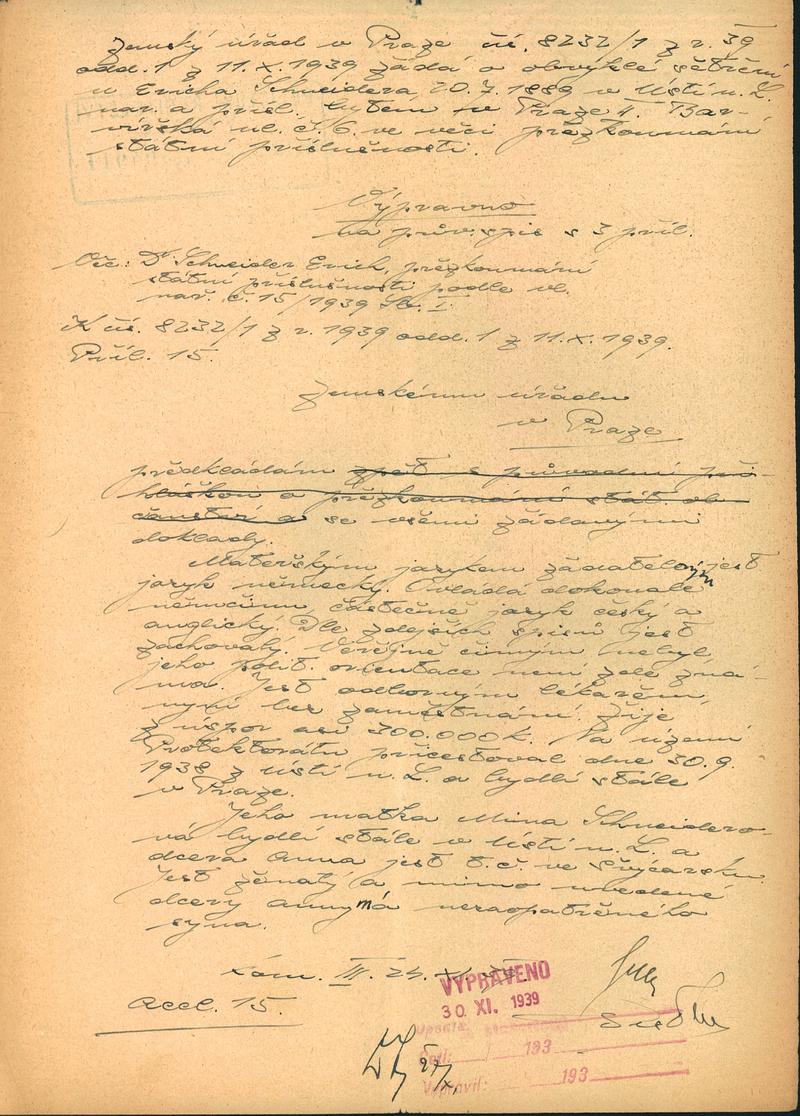 Zemský úřad v Praze čís. 8232/1 z r. 39
odd. 1 z 11.X.1939 žádá o obvyklé šetření
u Ericha Schneidera 20.7.1889 v Ústí n. L.
nar. a přísl. bytem v Praze II. Bar-
vířská ul. č. 6. ve věci přezkoumání
státní příslušnosti.
Výpravno
na prův. spis s 3 příl.
Věc: Dr Schneider Erich, přezkoumání
státní příslušnosti podle vl.
nař. č. 15/1939 Sb. I.
K čís. 8232/1 z r. 1939 odd. 1 z 11.X.1939.
Příl. 15.
Zemskému úřadu
v Praze
předkládám zpět s původní při-
hláškou o přezkoumání stát. ob-
čanství a se všemi žádanými
doklady.
Mateřským jazykem žadatelovým jest
jazyk německý. Ovládá dokonale
němčinu, částečně jazyk český a
anglický. Dle zdejších spisů jest
zachovalý. Veřejně činným nebyl,
jeho polit. orientace není zde zná-
ma. Jest odborným lékařem,
nyní bez zaměstnání. Žije
z úspor asi 300.000 K. Na území
Protektorátu přicestoval dne 30.9.
1938 z Ústí n. L. a bydlí stále
v Praze.
Jeho matka Mina Schneidero-
vá bydlí stále v Ústí n. L. a
dcera Anna jest t. č. ve Švýcarsku.
Jest ženatý a mimo uvedené
dcery Anny má nezaopatřeného
syna.
kom. III. 24.
VYPRAVENO
30. XI. 1939
Accl. 15.
193
Vypravil: 193